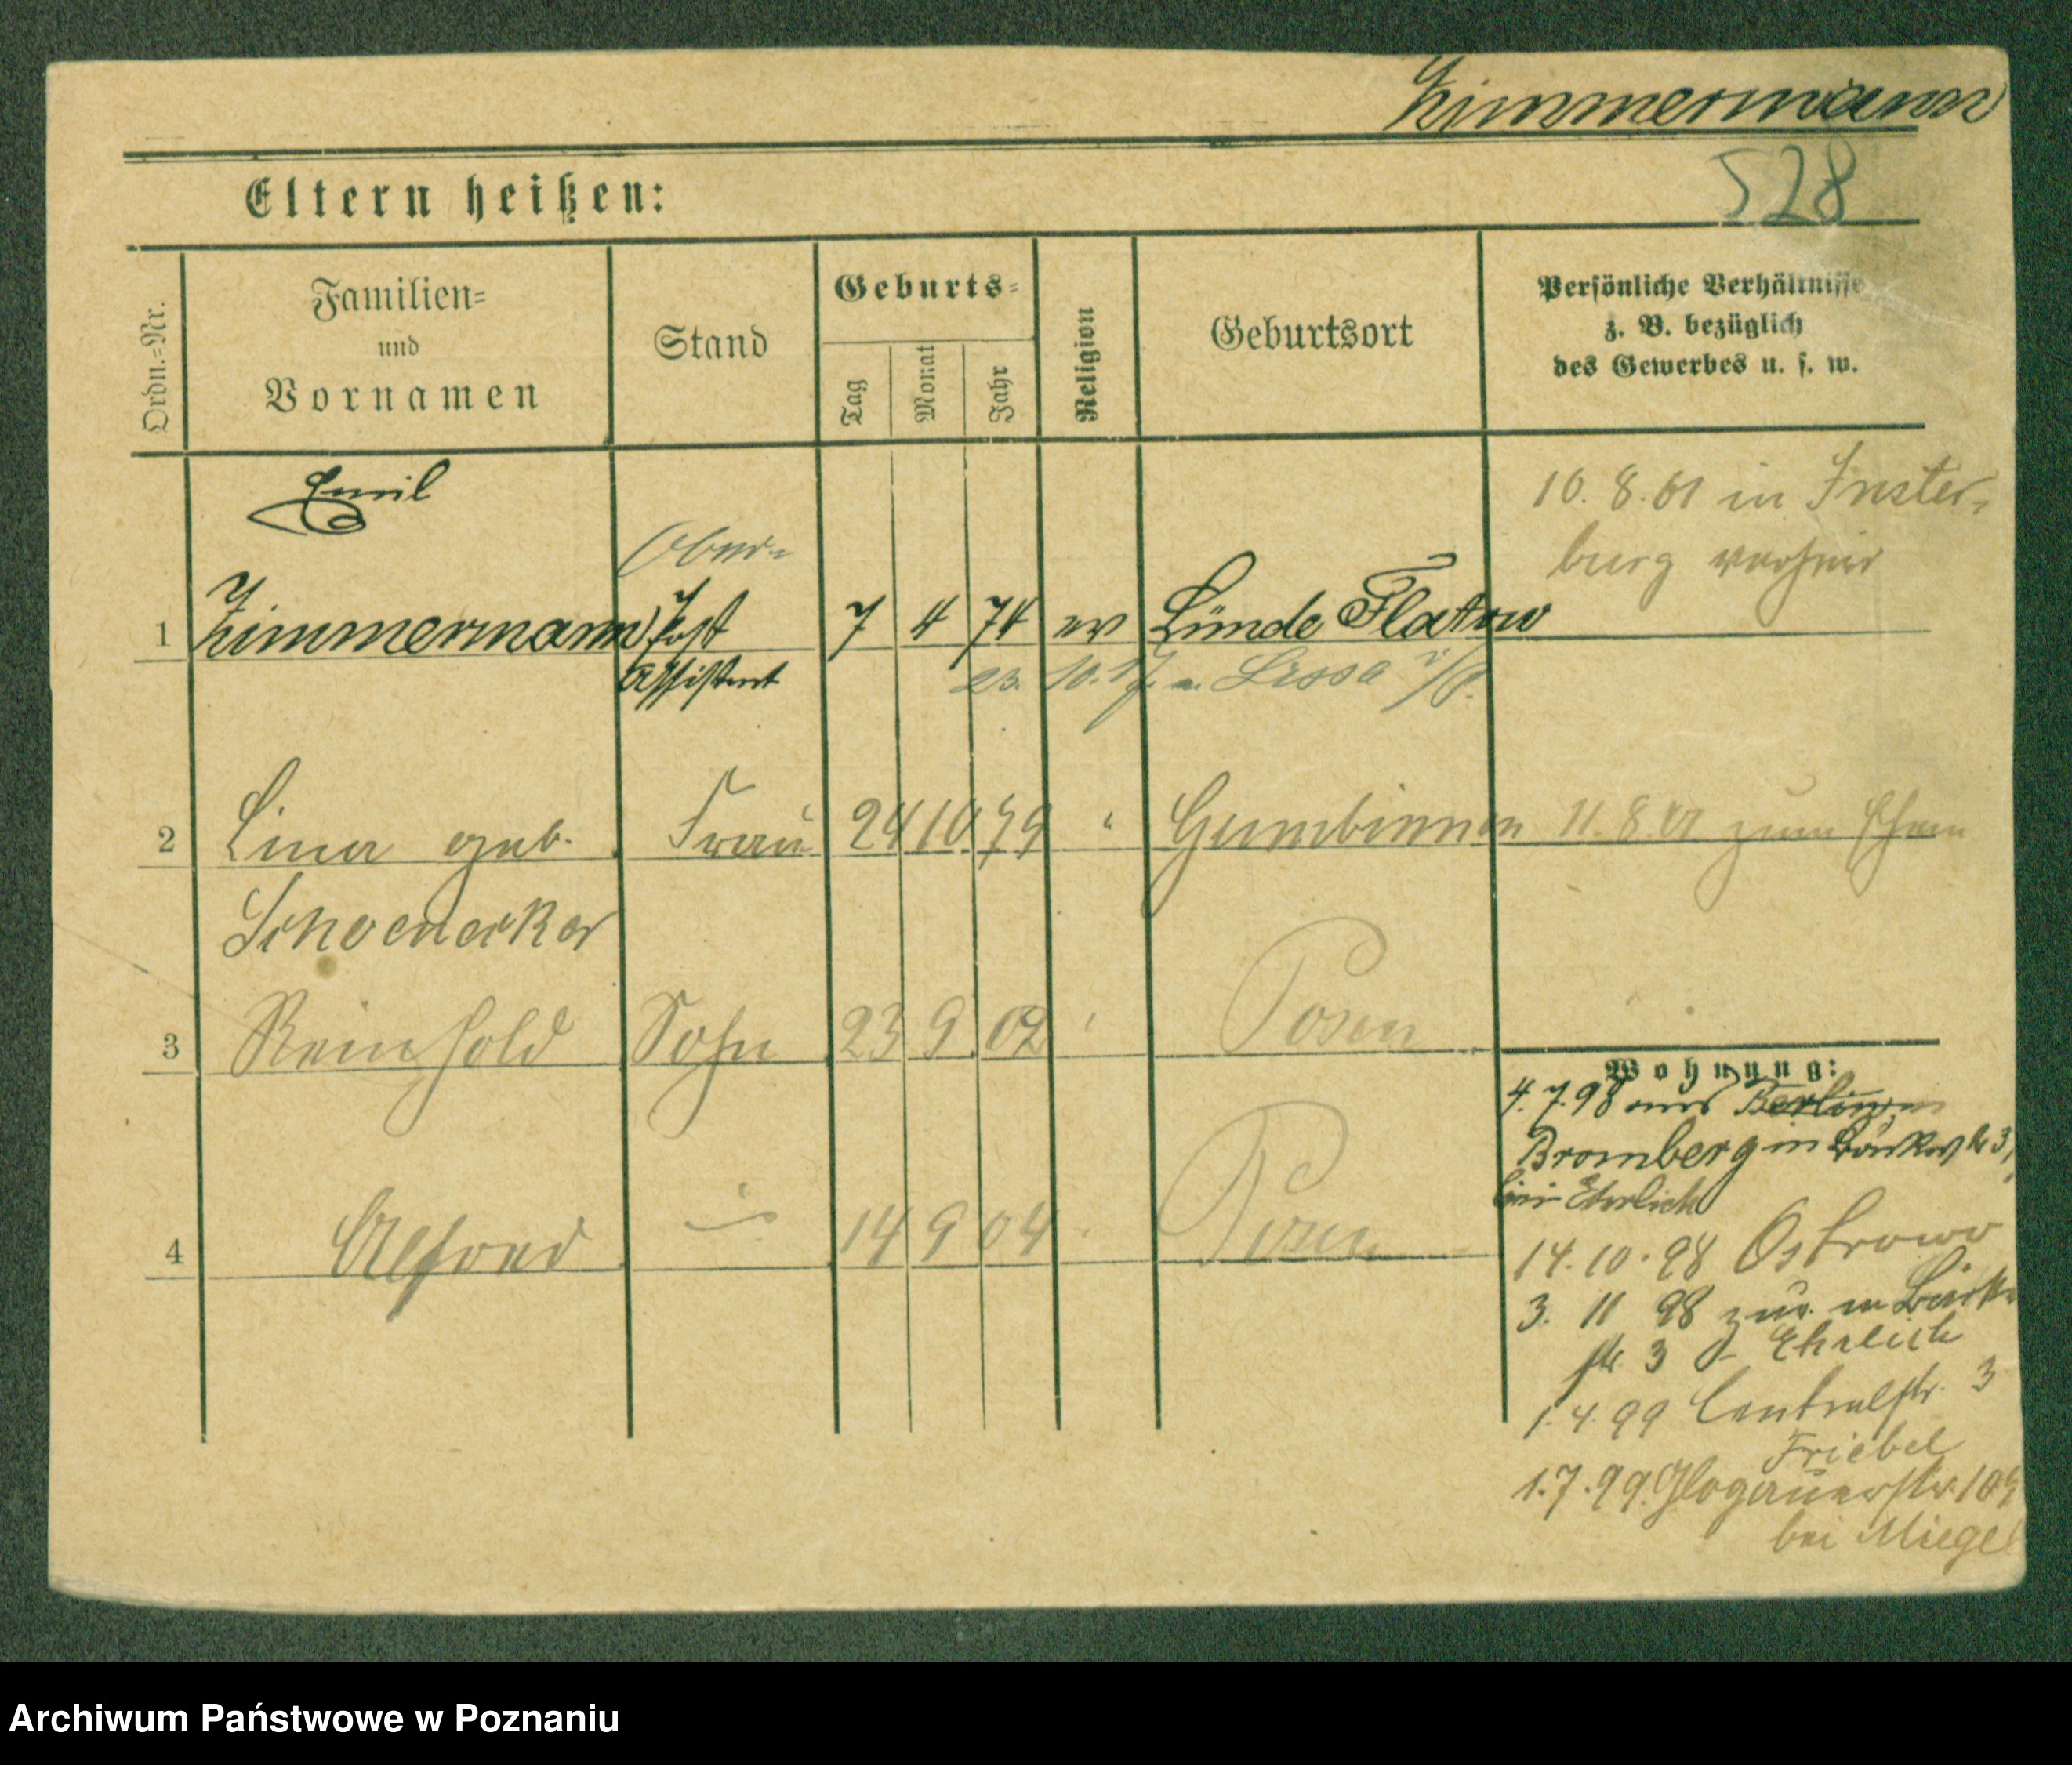 Zimmermann
528
Eltern heißen:
Ordn.=Nr.
Familien=
und
Vornamen
Stand
Geburts=
Tag
Monat
Jahr
Religion
Geburtsort
Persönliche Verhältnisse
z. B. bezüglich
des Gewerbes u. s. w.
Emil
Ober-
1 Zimmermann Post 7 4 74 ev Lünde Flatow
Assistent
10. 8. 01 in Inster-
burg verheir
23. 10. Lissa i/P.
2 Lina geb. Frau 24 10 79 " Gumbinnen 11. 8. 01 zum Ehem
Schoenacker
3 Reinhold Sohn 23 9 02 " Posen
4 Alfred 14 9 04 Posen
Wohnung:
4. 7. 98 aus Berlin
Bromberg in 3
bei Ehrlich
14. 10. 98 Ostrowo
3. 11 98 zur. in
str 3 Ehrlich
1. 4. 99 Centralstr. 3
Friebel
1. 7. 99. Glogauerstr.
bei Miegel
Archiwum Państwowe w Poznaniu